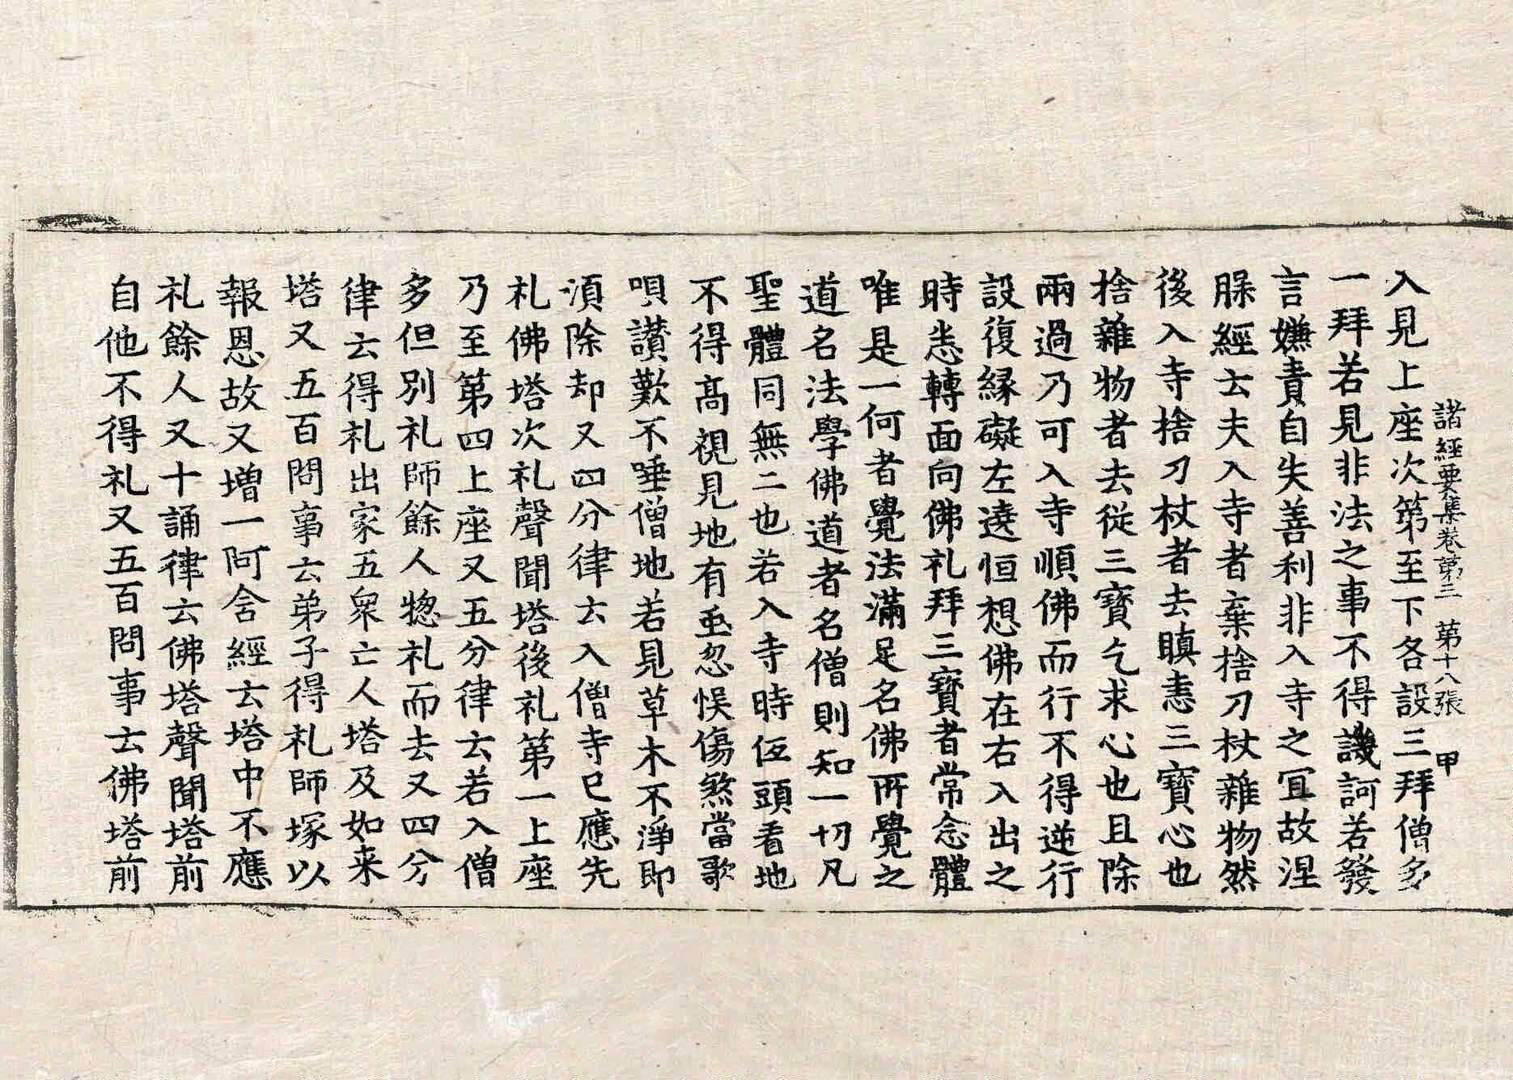 諸經要集卷第三　第十八張　甲
入見上座次第至下各設三拜僧多
一拜若見非法之事不得譏訶若發
言嫌責自失善利非入寺之冝故涅
腂經云夫入寺者棄捨刀杖雜物然
後入寺捨刀杖者去瞋恚三寳心也
捨雜物者去從三寳乞求心也且除
兩過乃可入寺順佛而行不得逆行
設復縁礙左遶恒想佛在右入出之
時恚轉面向佛礼拜三寳者常念體
唯是一何者覺法滿足名佛所覺之
道名法學佛道者名僧則知一切凡
聖體同無二也若入寺時伍頭看地
不得髙視見地有䖝忽悮傷煞當歌
唄讃歎不唾僧地若見草木不淨即
湏除却又四分律云入僧寺已應先
礼佛塔次礼聲聞塔後礼第一上座
乃至第四上座又五分律云若入僧
多但別礼師餘人揔礼而去又四分
律云得礼出家五衆亡人塔及如来
塔又五百問事云弟子得礼師塚以
報恩故又増一阿含經云塔中不應
礼餘人又十誦律云佛塔聲聞塔前
自他不得礼又五百問事云佛塔前